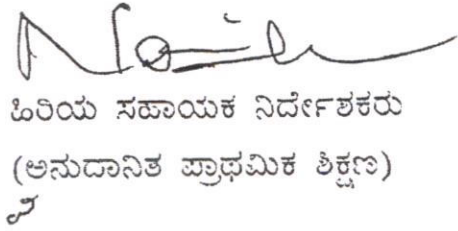 ಹಿರಿಯ ಸಹಾಯಕ ನಿರ್ದೇಶಕರು
(ಅನುದಾನಿತ ಪ್ರಾಥಮಿಕ ಶಿಕ್ಷಣ)